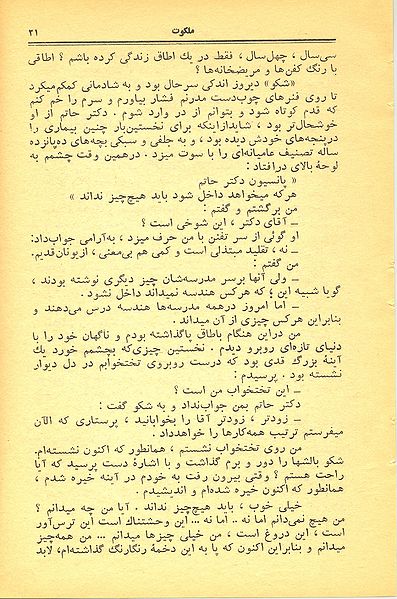 ملکوت ۳۱
سی‌سال ، چهل‌سال ، فقط در یك اطاق زندگی کرده باشم ؟ اطاقی
با رنگ کفن‌ها و مریضخانه‌ها ؟
«شکو» دیروز اندکی سرحال بود و به شادمانی کمکم‌میکرد
تا روی فنرهای چوب‌دست مدرنم فشار بیاورم و سرم را خم کنم
که قدم کوتاه شود و بتوانم از در وارد شوم . دکتر حاتم از او
خوشحال‌تر بود ، شایدازاینکه برای نخستین‌بار چنین بیماری را
درپنجه‌های خودش دیده بود ، و به جلفی و سبکی بچه‌های ده‌پانزده
ساله تصنیف عامیانه‌ای را با سوت میزد . درهمین وقت چشمم به
لوحهٔ بالای درافتاد :
« پانسیون دکتر حاتم
هرکه میخواهد داخل شود باید هیچ‌چیز نداند »
من برگشتم و گفتم :
ــ آقای دکتر ، این شوخی است ؟
او گوئی از سر تفنن با من حرف میزد ، به‌آرامی جواب‌داد:
ــ نه ، تقلید مبتذلی است و کمی هم بی‌معنی ، ازیونان‌قدیم.
من گفتم :
ــ ولی آنها برسر مدرسه‌شان چیز دیگری نوشته بودند ،
گویا شبیه این : که هرکس هندسه نمیداند داخل نشود .
ــ اما امروز درهمه مدرسه‌ها هندسه درس می‌دهند و
بنابراین هرکس چیزی از آن میداند .
من دراین هنگام باطاق پاگذاشته بودم و ناگهان خود را با
دنیای تازه‌ای روبرو دیدم . نخستین چیزی‌که بچشمم خورد یك
آینهٔ بزرگ قدی بود که درست روبروی تختخوابم در دل دیوار
نشسته بود . پرسیدم :
ــ این تختخواب من است ؟
دکتر حاتم بمن جواب‌نداد و به شکو گفت :
ــ زودتر ، زودتر آقا را بخوابانید ، پرستاری که الآن
میفرستم ترتیب همه‌کارها را خواهدداد .
من روی تختخواب نشستم ، همانطور که اکنون نشسته‌ام.
شکو بالشها را دور و برم گذاشت و با اشارهٔ دست پرسید که آیا
راحت هستم ؟ وقتی بیرون رفت به خودم در آینه خیره شدم ،
همانطور که اکنون خیره شده‌ام و اندیشیدم .
خیلی خوب ، باید هیچ‌چیز نداند . آیا من چه میدانم ؟
من هیچ نمی‌دانم اما نه .. اما نه ... این وحشتناك است این ترس‌آور
است ، این دروغ است ، من خیلی چیزها میدانم ... من همه‌چیز
میدانم و بنابراین اکنون که پا به این دخمهٔ رنگارنگ گذاشته‌ام، لابد